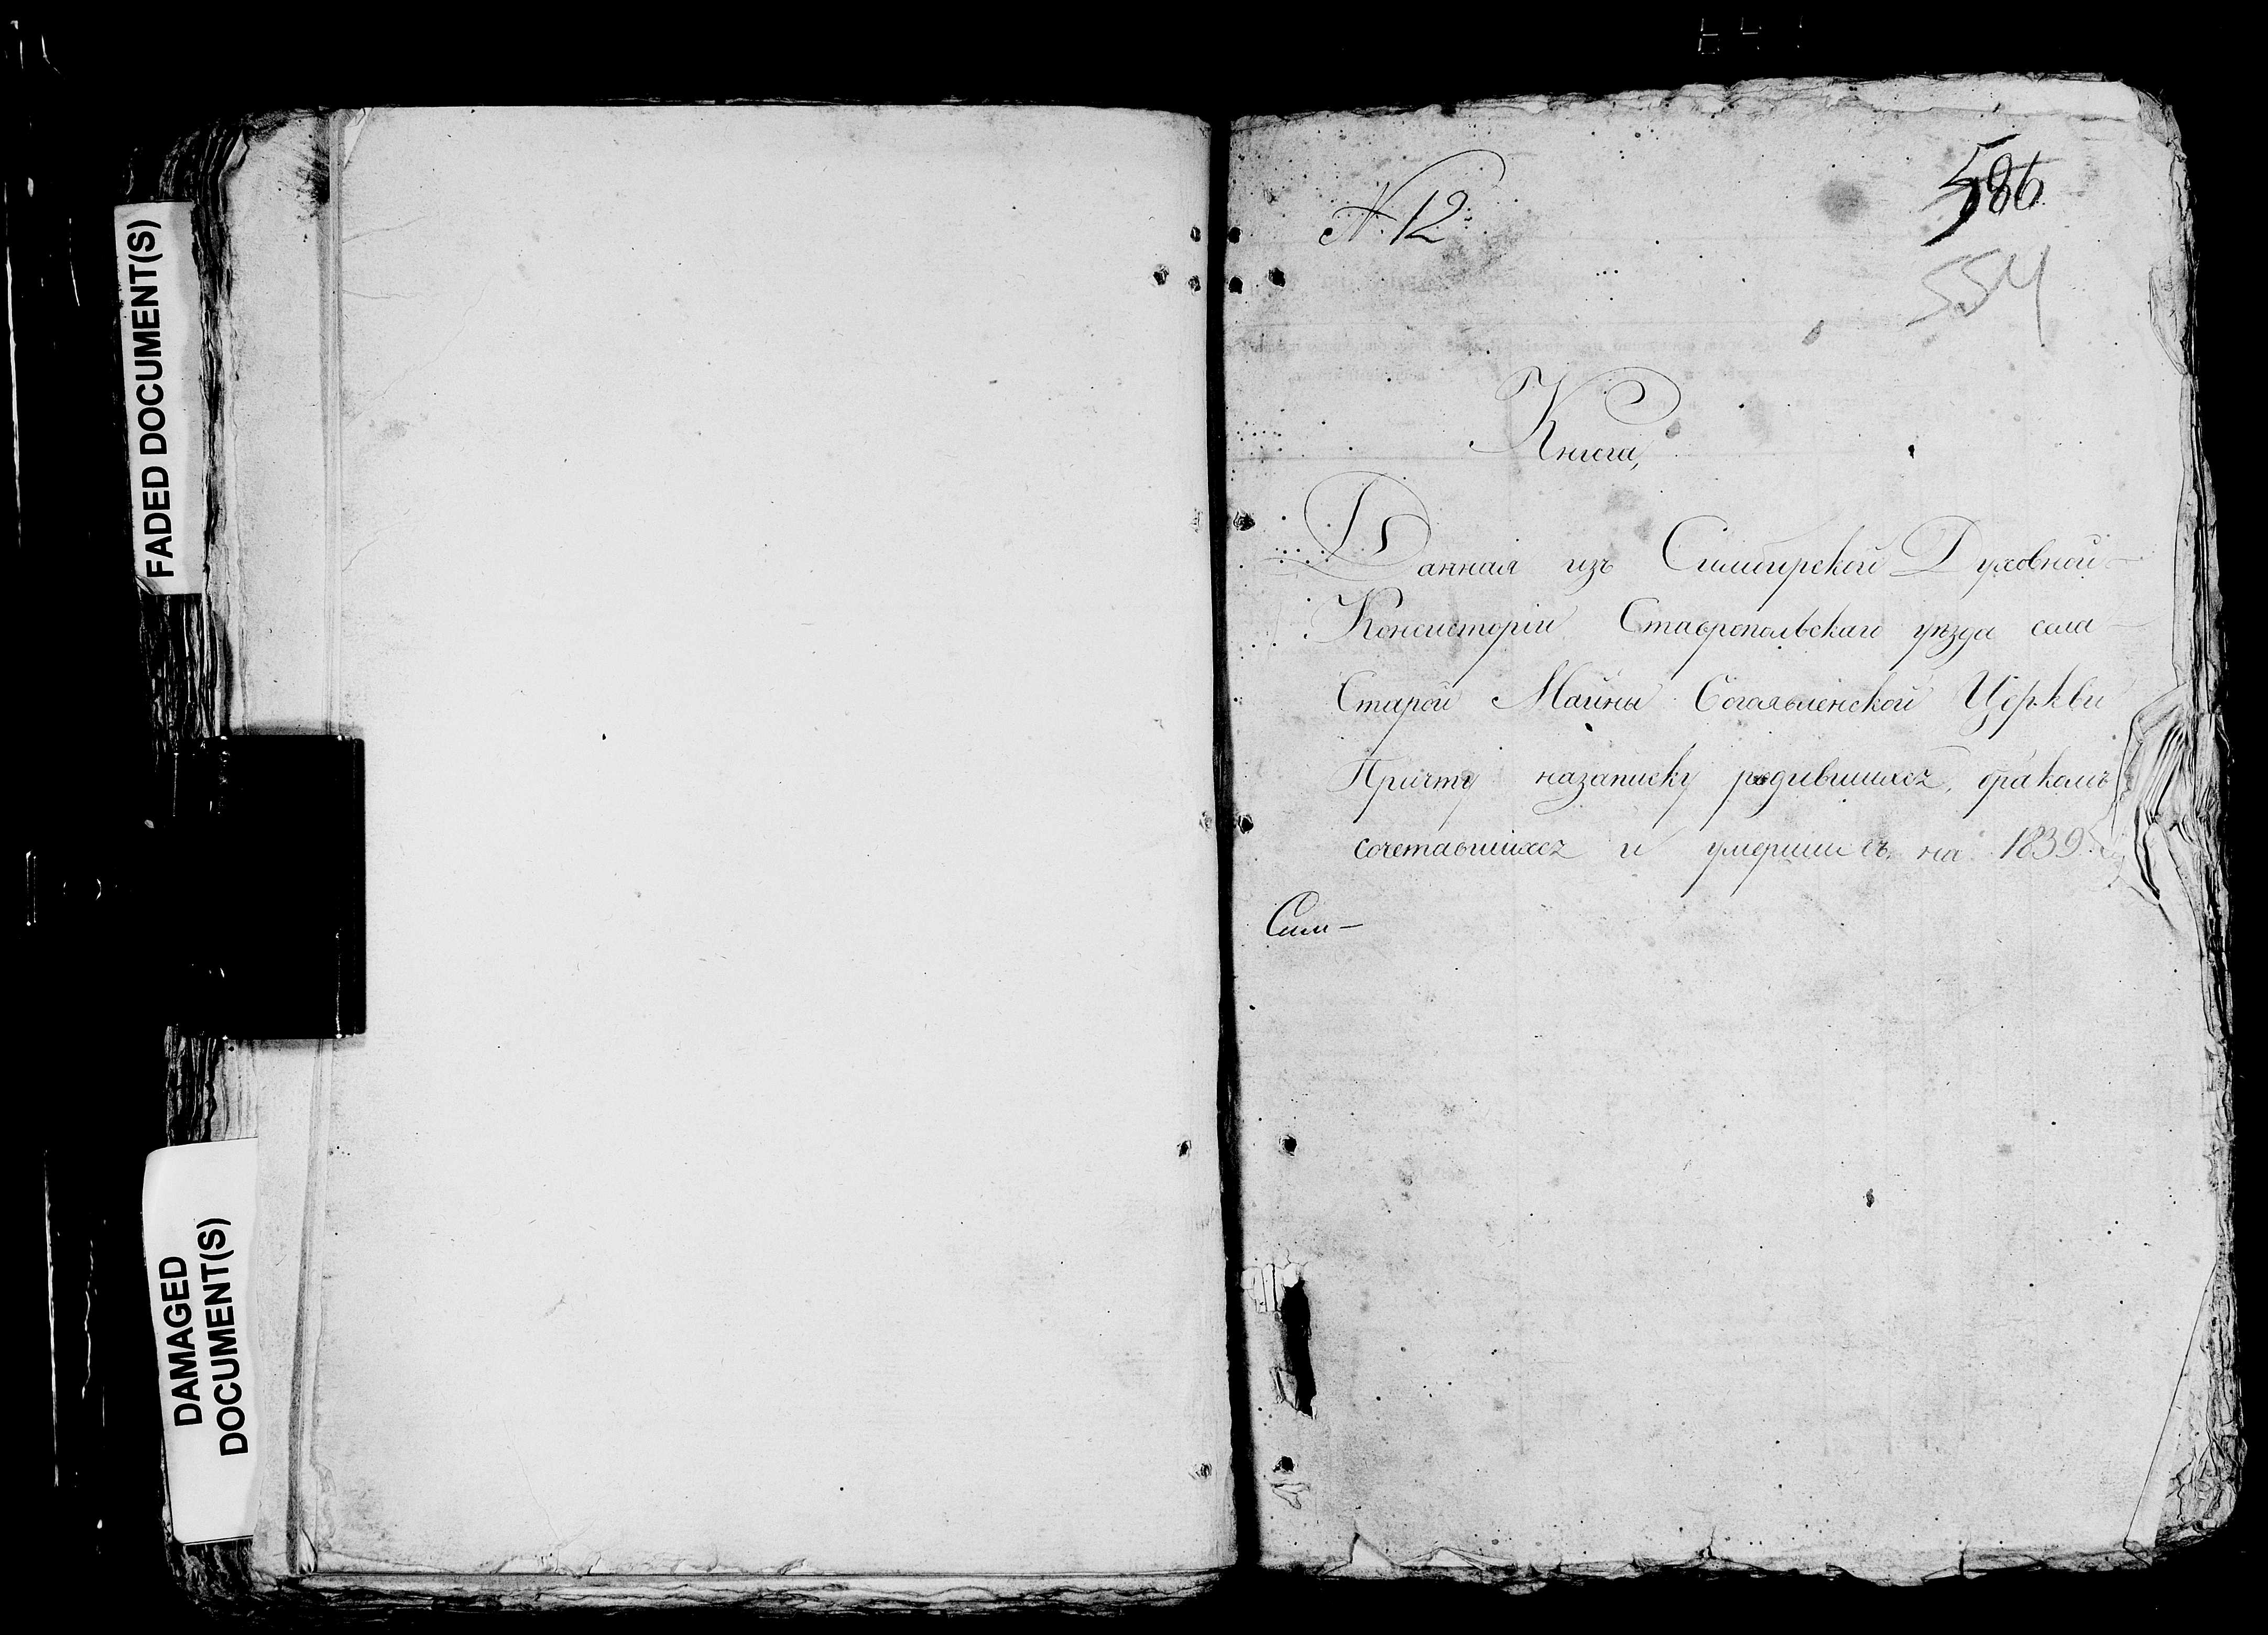 FADED DOCUMENT(S)
DAMAGED
DOCUMENT(S)
N. 12
586
554
Книга,
Данная изъ Симбирской Духовной
Консисторіи Ставропольскаго уѣзда села
Старой Майны Богоявленской Церкви
Причту назаписку родившихся, бракомъ
сочетавшихся и умершихъ на 1839
Сим-